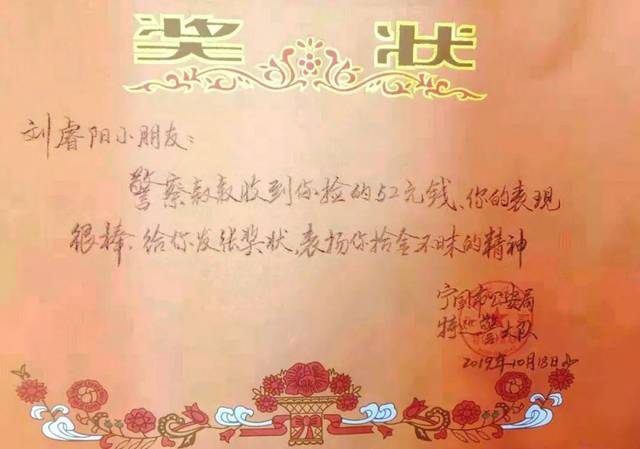 奖 状
刘睿阳小朋友：
警察叔叔收到你捡的52元钱、你的表现
很棒、给你发张奖状、表扬你拾金不昧的精神
宁国市公安局
特巡警大队
2019年10月18日